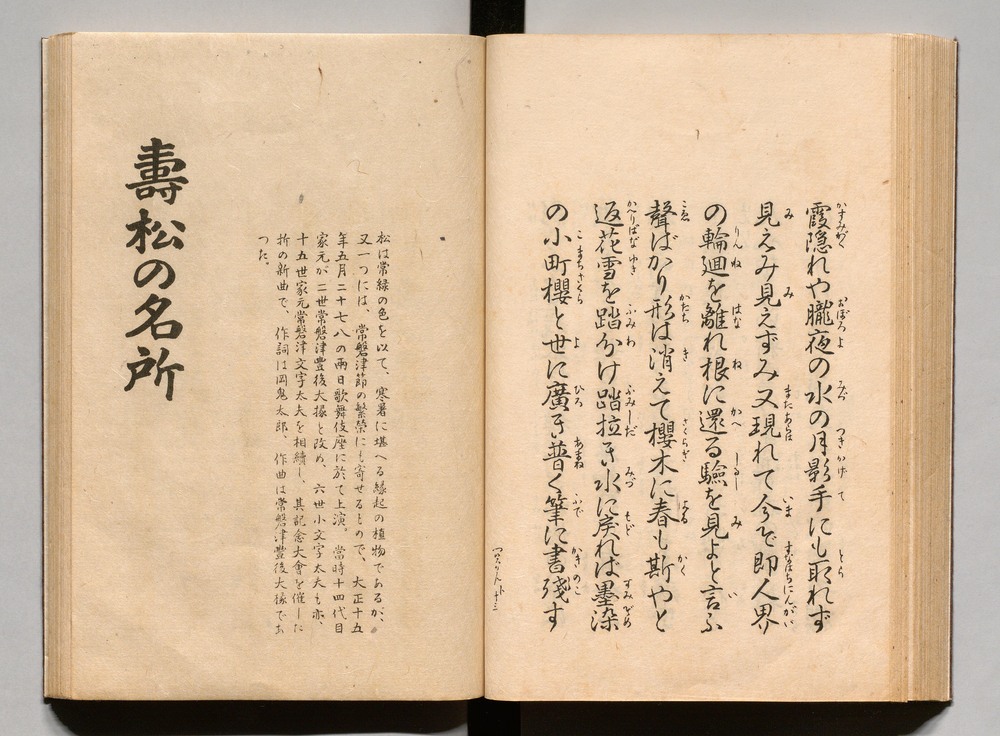 霞隠れや朧夜の水の月影手にも取れず
見えみ見えずみ又現れて今ぞ即人界
の輪廻を離れ根に還る驗を見よと言ふ
聲ばかり形は消えて櫻木に春も斯やと
返花雪を踏分け踏拉き水に戻れば墨染
の小町櫻と世に廣き普く筆に書残す
壽松の名所
松は常緑の色を以て、寒暑に堪へる縁起の植物であるが、
又一つには、常磐津節の繁榮にも寄せるもので、大正十五
年五月二十七八の兩日歌舞伎座に於て上演。當時十四代目
家元が二世常磐津豊後大掾と改め、六世小文字太夫も亦、
十五世家元常磐津文字太夫を相續し、其記念大會を催した
折の新曲で、作詞は岡鬼太郎、作曲は常磐津豊後大掾であ
つた。